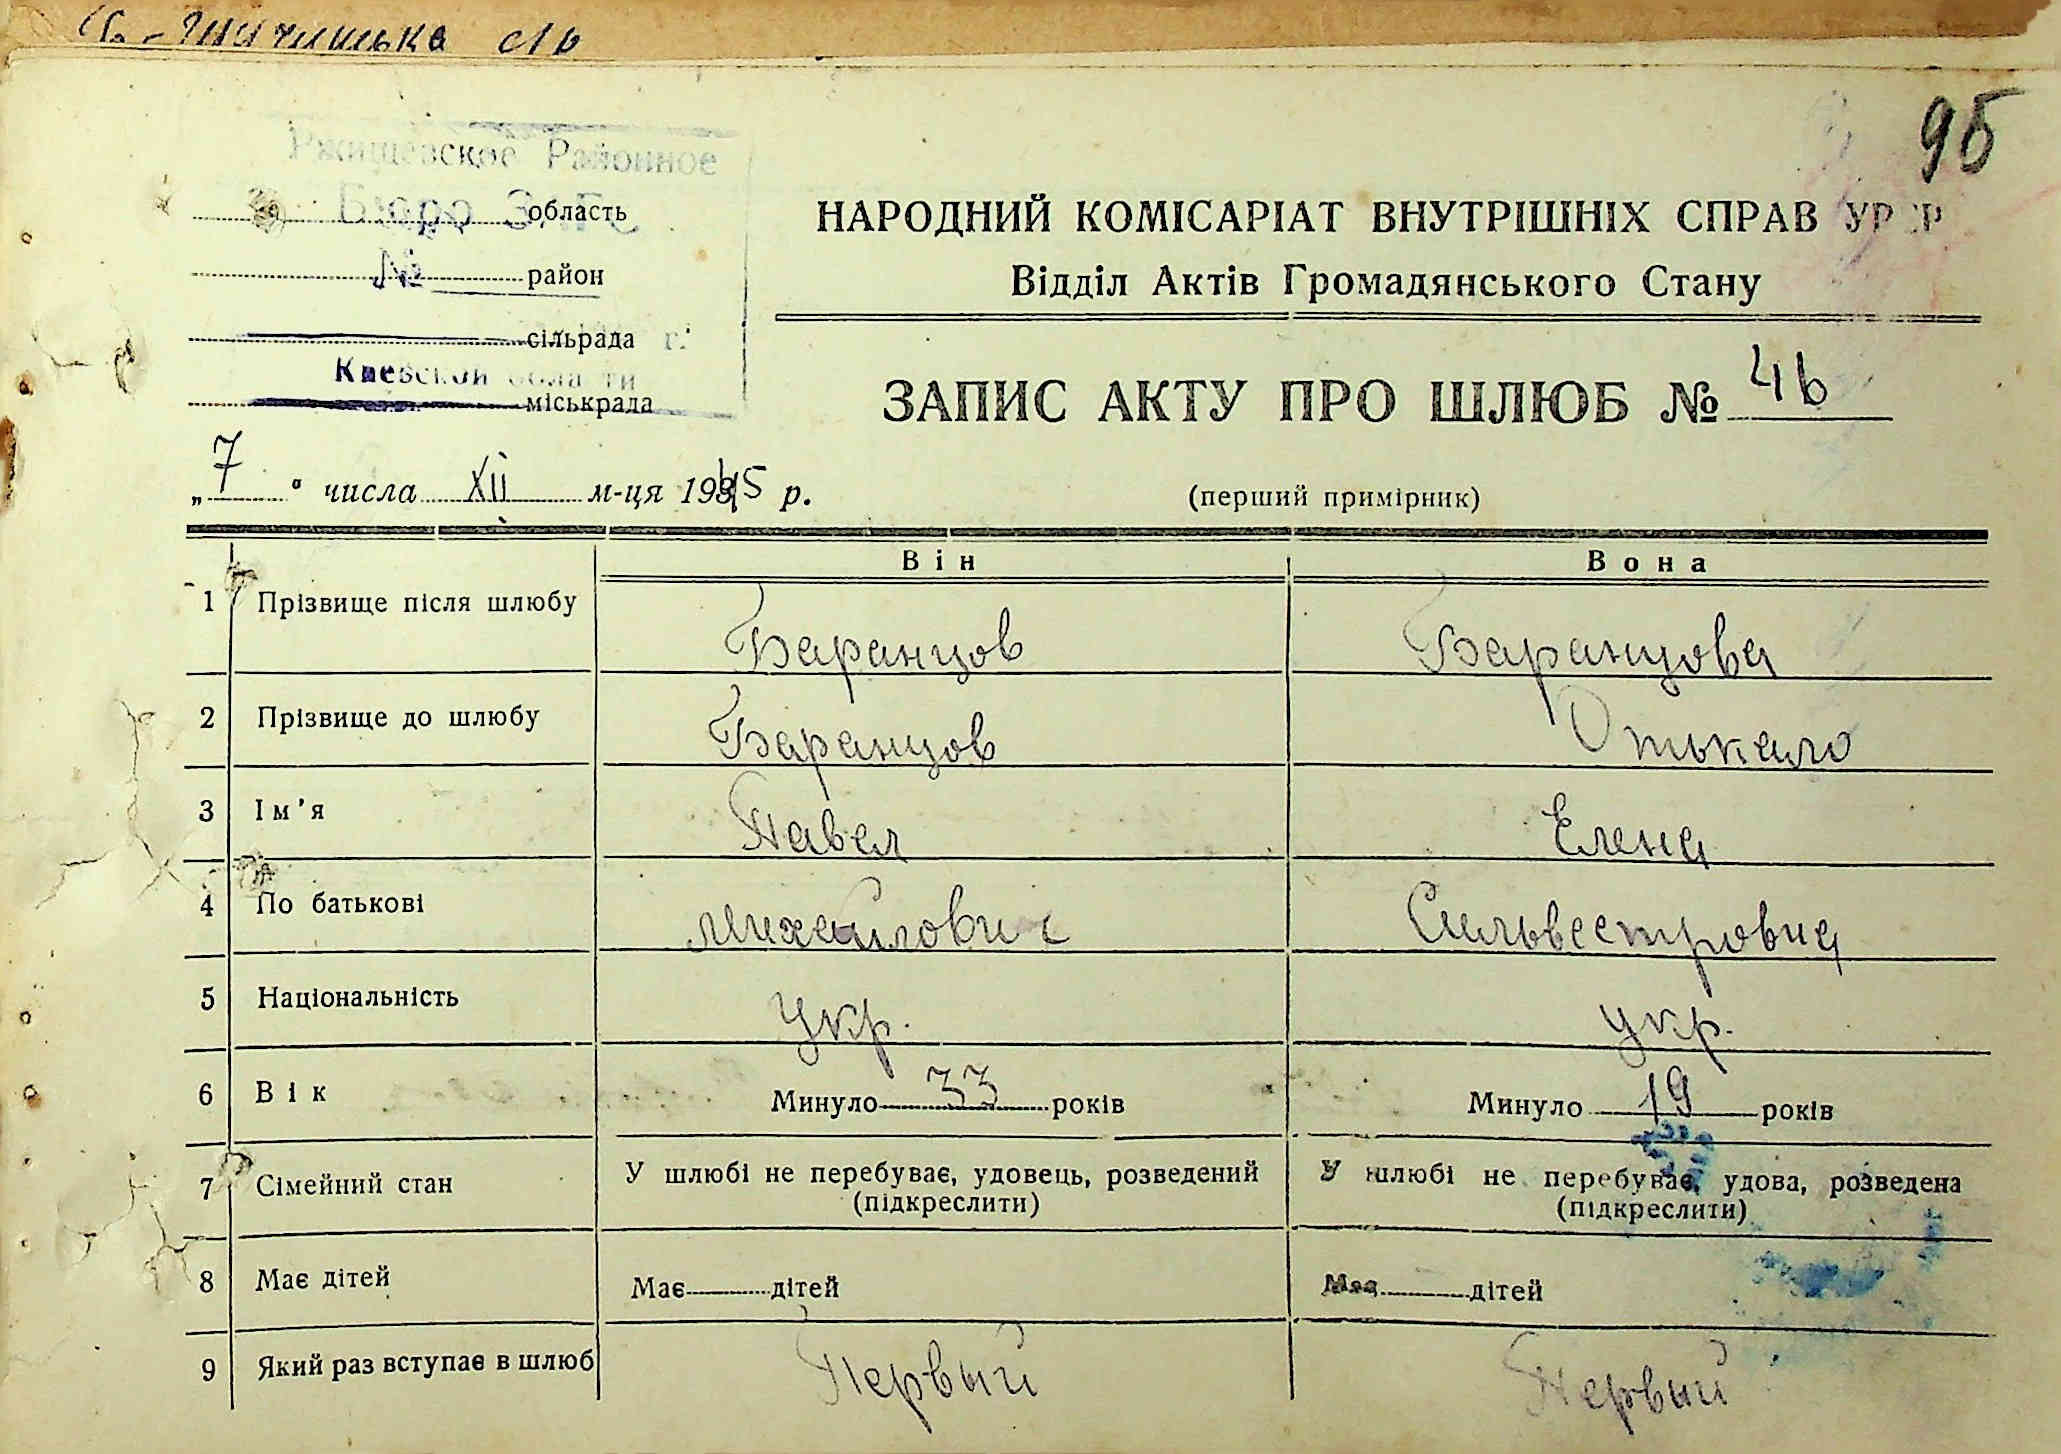 95
Ржищевское Районное
Бюро ЗАГС
область
№ район
сільрада г.
Киевской области
міськрада
НАРОДНИЙ КОМІСАРІАТ ВНУТРІШНІХ СПРАВ УРСР
Відділ Актів Громадянського Стану
ЗАПИС АКТУ ПРО ШЛЮБ № 46
„7" числа XII м-ця 1945 р.
(перший примірник)
Він Вона
1 Прізвище після шлюбу Баранцов Баранцова
2 Прізвище до шлюбу Баранцов Отькало
3 Ім'я Павел Елена
4 По батькові Михайлович Сильвестровна
5 Національність Укр. Укр.
6 Вік Минуло 33 років Минуло 19 років
7 Сімейний стан У шлюбі не перебуває, удовець, розведений У шлюбі не перебуває, удова, розведена
(підкреслити) (підкреслити)
8 Має дітей Має дітей Має дітей
9 Який раз вступає в шлюб Первый Первый